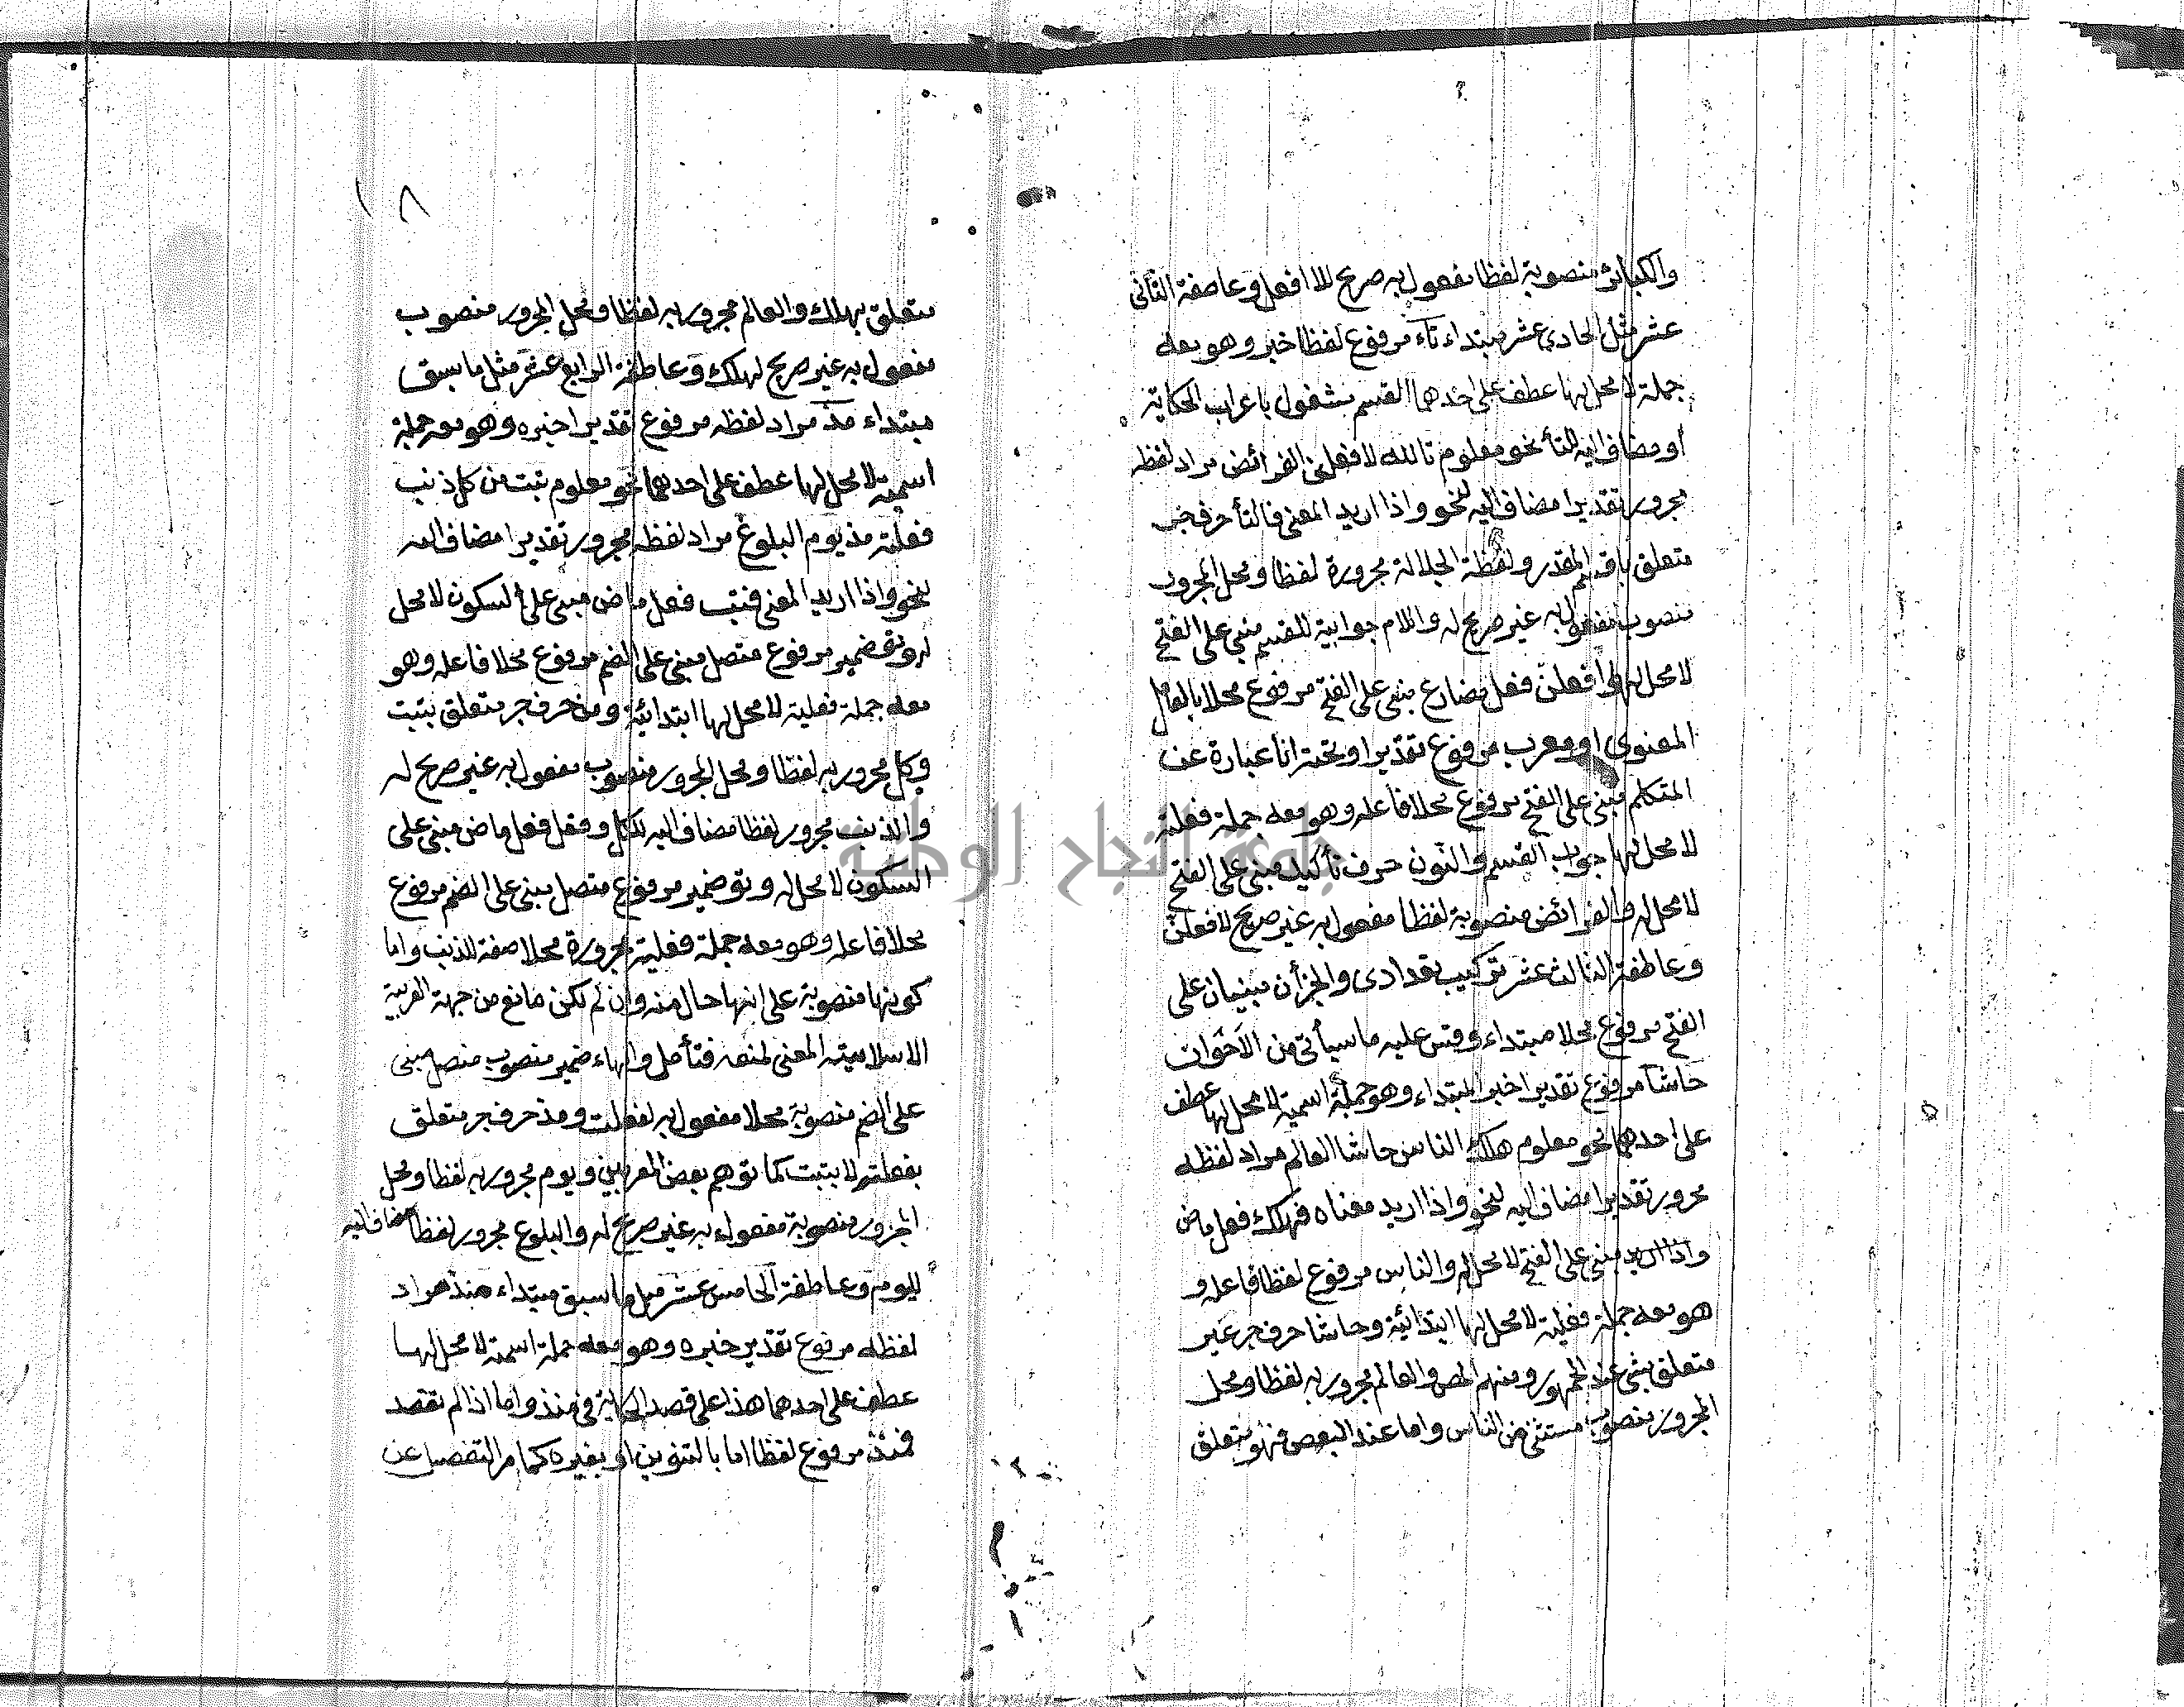 والكبائر منصوبة لفظا مفعول به صريح للا افعل وعاطفة الثانى
عشر مثل الحادى عشر مبتداء تاء مرفوع لفظا خبر وهو معه
جملة لا محل لها عطف على احدهما القسم مشغول باعراب الحكاية
او مضاف اليه للتأ نحو معلوم تالله لافعلن الفرائض مراد لفظه
مجرور تقديرا مضاف اليه لنحو واذا اريد المعنى فالتأ حرف جر
متعلق باقسم المقدر ولفظة الجلالة مجرورة لفظا ومحل المجرور
منصوب مفعول به غير صريح له واللام جوابية للقسم مبنى على الفتح
لا محل لها وافعلن فعل مضارع مبنى على الفتح مرفوع محلا بالعامل
المعنوى او معرب مرفوع تقديرا وتحته انا عبارة عن
المتكلم مبنى على الفتح مرفوع محلا فاعله وهو معه جملة فعلية
لا محل لها جواب القسم والنون حرف تأكيد مبنى على الفتح
لا محل له والفرائض منصوبة لفظا مفعول به غير صريح لافعلن
وعاطفة الثالث عشر تركيب تعدادى والجزأن مبنيان على
الفتح مرفوع محلا مبتداء وقس عليه ماسيأتى من الاخوات
حاشا مرفوع تقديرا خبر المبتداء وهو جملة اسمية لا محل لها عطف
على احدهما نحو معلوم هلك الناس حاشا العالم مراد لفظه
مجرور تقديرا مضاف اليه لنحو واذا اريد معناه فهلك فعل ماض
واذا اريد مبنى على الفتح لا محل له والناس مرفوع لفظا فاعله و
هو معه جملة فعلية لا محل لها ابتدائية وحاشا حرف جر غير
متعلق بشئ عند الجمهور ومنهم المص والعالم مجرور به لفظا ومحل
المجرور منصوب مستثنى من الناس واما عند البعض فهو متعلق
١٨
متعلق بهلك والعالم مجرور به لفظا ومحل المجرور منصوب
مفعول به غير صريح لهلك وعاطفة الرابع عشر مثل ماسبق
مبتداء مذ مراد لفظه مرفوع تقديرا خبره وهو معه جملة
اسمية لا محل لها عطف على احدهما نحو معلوم تبت من كل ذنب
فعلته مذ يوم البلوغ مراد لفظه مجرور تقديرا مضاف اليه
لنحو واذا اريد المعنى فتب فعل ماض مبنى على السكون لا محل
له وتو ضمير مرفوع متصل مبنى على الضم مرفوع محلا فاعله وهو
معه جملة فعلية لا محل لها ابتدائية ومن حرف جر متعلق بتبت
وكل مجرور به لفظا ومحل المجرور منصوب مفعول به غير صريح له
والذنب مجرور لفظا مضاف اليه لكل وفعل فعل ماض مبنى على
السكون لا محل له وتو ضمير مرفوع متصل مبنى على الضم مرفوع
محلا فاعله وهو معه جملة فعلية مجرورة محلا صفة للذنب واما
كونها منصوبة على انها حال منه وان لم تكن مانع من جهة العربية
الا سلاسة المعنى تمنعه فتأمل والهاء ضمير منصوب متصل مبنى
على الضم منصوبة محلا مفعول به لفعلت ومذ حرف جر متعلق
بفعلته لا بتبت كما توهم بعض المعربين ويوم مجرور به لفظا ومحل
المجرور منصوبة مفعول به غير صريح له والبلوغ مجرور لفظا مضاف اليه
لليوم وعاطفة الخامس عشر مثل ماسبق مبتداء منذ مراد
لفظه مرفوع تقدير خبره وهو معه جملة اسمية لا محل لها
عطف على احدهما هذا على قصد الحكاية فى منذ واما اذا لم تقصد
فمنذ مرفوع لفظا اما بالتنوين او بغيره كما مر التفصيل عن
جامعة النجاح الوطنية